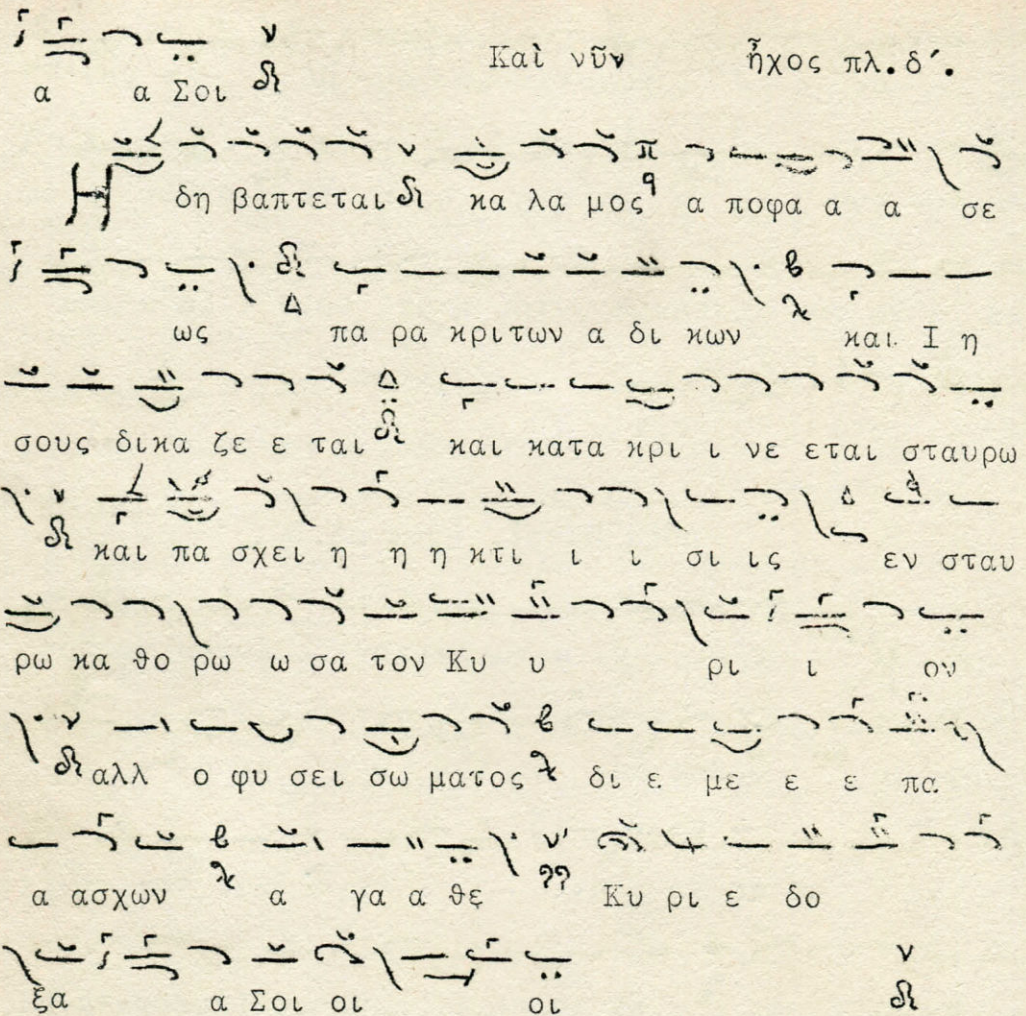 α α Σοι Καὶ νῦν ἦχος πλ. δ´.
Η δη βαπτεται κα λα μος α ποφα α α σε
ως πα ρα κριτων α δι κων και Ι η
σους δικα ζε ε ται και κατα κρι ι νε εται σταυρω
και πα σχει η η η κτι ι ι σι ις εν σταυ
ρω κα θο ρω ω σα τον Κυ υ ρι ι ον
αλλ ο φυ σει σω ματος δι ε με ε ε πα
α ασχων α γα α θε Κυ ρι ε δο
ξα α Σοι οι οι